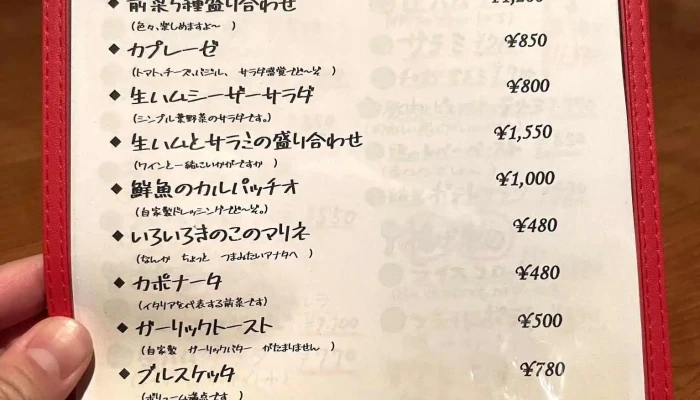 前菜5種盛り合わせ ¥1,200
(色々、楽しめますよ〜 )
◆ カプレーゼ ¥850
(トマト、チーズ、バジル、 サラダ感覚でど〜ぞ )
◆ 生ハムシーザーサラダ ¥800
(シンプル葉野菜のサラダです。)
◆ 生ハムとサラミの盛り合わせ ¥1,550
(ワインと一緒にいかがですか )
◆ 鮮魚のカルパッチオ ¥1,000
(自家製ドレッシングでど〜ぞ。)
◆ いろいろきのこのマリネ ¥480
(なんか ちょっと つまみたいアナタへ )
◆ カポナータ ¥480
(イタリアを代表する前菜です)
◆ ガーリックトースト ¥500
(自家製 ガーリックバター がたまりません )
◆ ブルスケッタ ¥780
(ボリューム満点です )